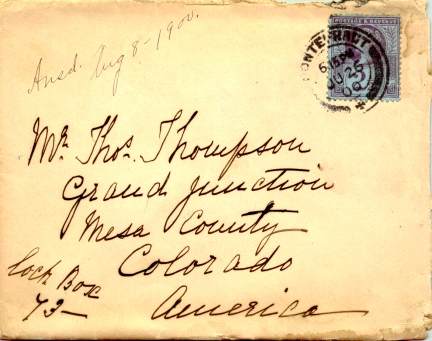 Ansd. Aug 8-1900.
POSTAGE & REVENUE
PONTEFRACT
6.15PM
JU 26
00
Mr. Thos. Thompson
Grand Junction
Mesa County
Colorado
America
Lock Box
73-